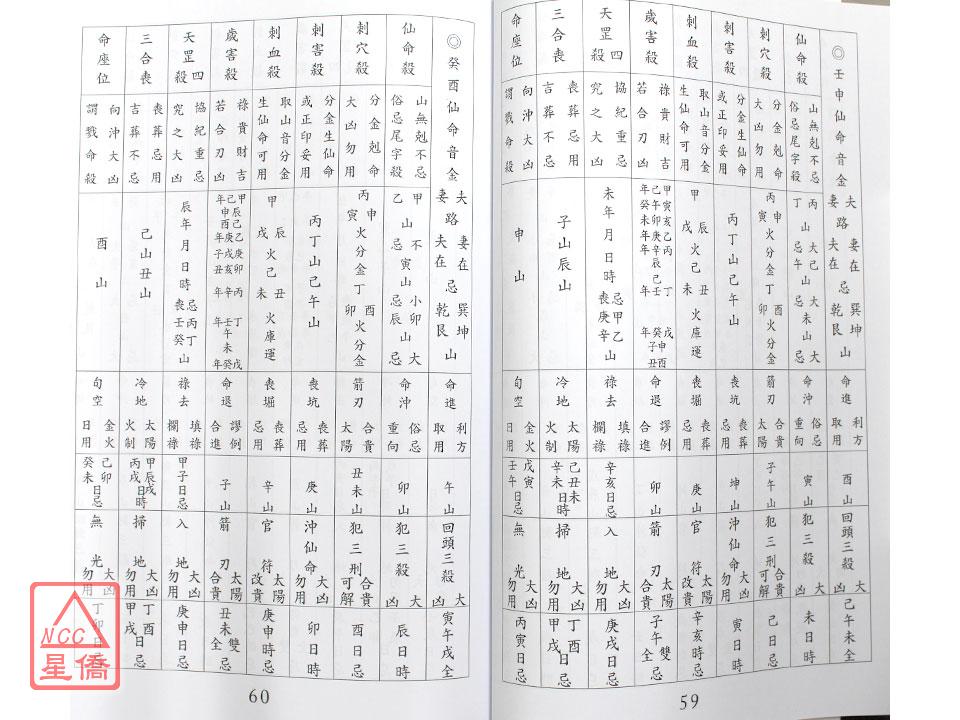 ◎壬申仙命音金
夫妻在忌巽坤山
妻路夫在乾艮山
命進
利方取用
酉山
回頭三殺大凶
己午未全
仙命殺
山無剋不忌
俗忌尾字殺
丙山大己山大忌
丁忌午山忌未山忌
命沖
俗忌重向
寅山
犯三殺大凶
未日時
刺穴殺
分金剋命
大凶勿用
丙申火分金丁酉火分金
箭刃
合貴太陽
子午山
犯三刑合貴可解
己日時
刺害殺
分金生仙命
或正印妥用
丙丁山己午山
喪坑
喪葬忌用
坤山
沖仙命大凶勿用
寅日時
刺血殺
取山音分金
生仙命可用
甲辰戌火己丑未火庫運
喪堀
喪葬忌用
庚山
官符太陽改貴
辛亥時忌
歲害殺
祿貴財吉
若合刃凶
命退
謬例合進
卯山
箭刃太陽合貴
子午全雙忌
天罡四殺
協紀重忌
究之大凶
未年月日時忌甲乙喪庚辛山
祿去
填祿欄祿
辛亥日忌
入地大凶勿用
庚戌日忌
三合喪
喪葬忌用
吉葬不忌
子山辰山
冷地
太陽火制
己丑未辛未日日時
掃地大凶勿用
丁酉甲戌日忌
命座位
向沖大凶
謂戮命殺
申山
旬空
金火日用
戊寅壬午日忌
無光大凶勿用
丙寅日忌
59
◎癸酉仙命音金
夫妻在忌巽坤山
妻路夫在乾艮山
命進
利方取用
午山
回頭三殺大凶
寅午戌全
仙命殺
山無剋不忌
俗忌尾字殺
甲不山小卯山大
乙山忌寅山忌辰山忌
命沖
俗忌重向
卯山
犯三殺大凶
辰日時
刺穴殺
分金剋命
大凶勿用
丙申火分金丁酉火分金
箭刃
合貴太陽
丑未山
犯三刑合貴可解
酉日時
刺害殺
分金生仙命
或正印妥用
丙丁山己午山
喪坑
喪葬忌用
庚山
沖仙命大凶勿用
卯日時
刺血殺
取山音分金
生仙命可用
甲辰戌火己丑未火庫運
喪堀
喪葬忌用
辛山
官符太陽改貴
庚申時忌
歲害殺
祿貴財吉
若合刃凶
命退
謬例合進
子山
箭刃太陽合貴
丑未全雙忌
天罡四殺
協紀重忌
究之大凶
辰年月日時忌丙丁喪壬癸山
祿去
填祿欄祿
甲子日忌
入地大凶勿用
庚申日忌
三合喪
喪葬忌用
吉葬不忌
己山丑山
冷地
太陽火制
甲辰戌丙戌日日時
掃地大凶勿用
丁酉甲戌日忌
命座位
向沖大凶
謂戮命殺
酉山
旬空
金火日用
己卯癸未日忌
無光大凶勿用
丁卯日忌
60
NCC
星僑